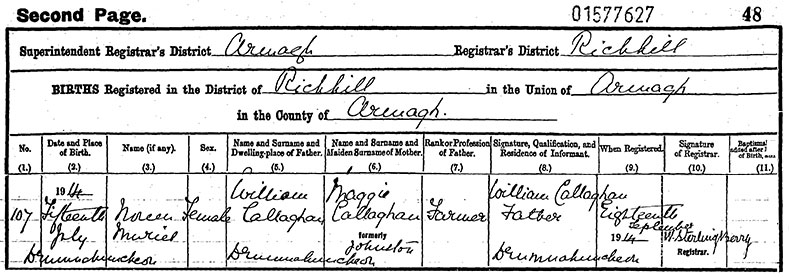 Second Page. 01577627 48
Superintendent Registrar's District Armagh Registrar's District Richhill
BIRTHS Registered in the District of Richhill in the Union of Armagh
in the County of Armagh.
No. Date and Place of Birth. Name (if any). Sex. Name and Surname and Dwelling-place of Father. Name and Surname and Maiden Surname of Mother. Rank or Profession of Father. Signature, Qualification, and Residence of Informant. When Registered. Signature of Registrar. Baptismal added after of Birth,
(1.) (2.) (3.) (4.) (5.) (6.) (7.) (8.) (9.) (10.) (11.)
1914 William Maggie William Callaghan
107 Fifteenth Noreen Female Callaghan Callaghan Farmer Father Eighteenth
July Muriel formerly September
Johnston 1914 W. Sterling Berry
Drumnahuncheon Drumnahuncheon Drumnahuncheon Registrar.